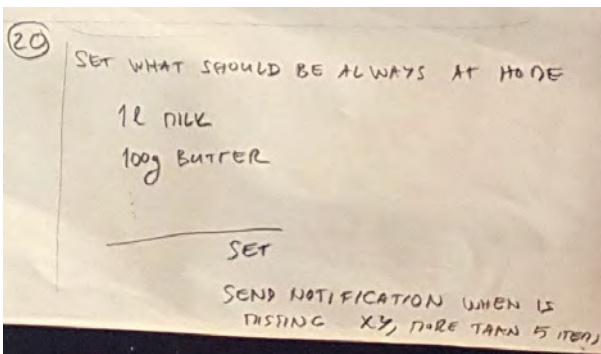 20
SET WHAT SHOULD BE ALWAYS AT HOME
1l MILK
100g BUTTER
SET
SEND NOTIFICATION WHEN IS
MISSING XY, MORE THAN 5 ITEMS